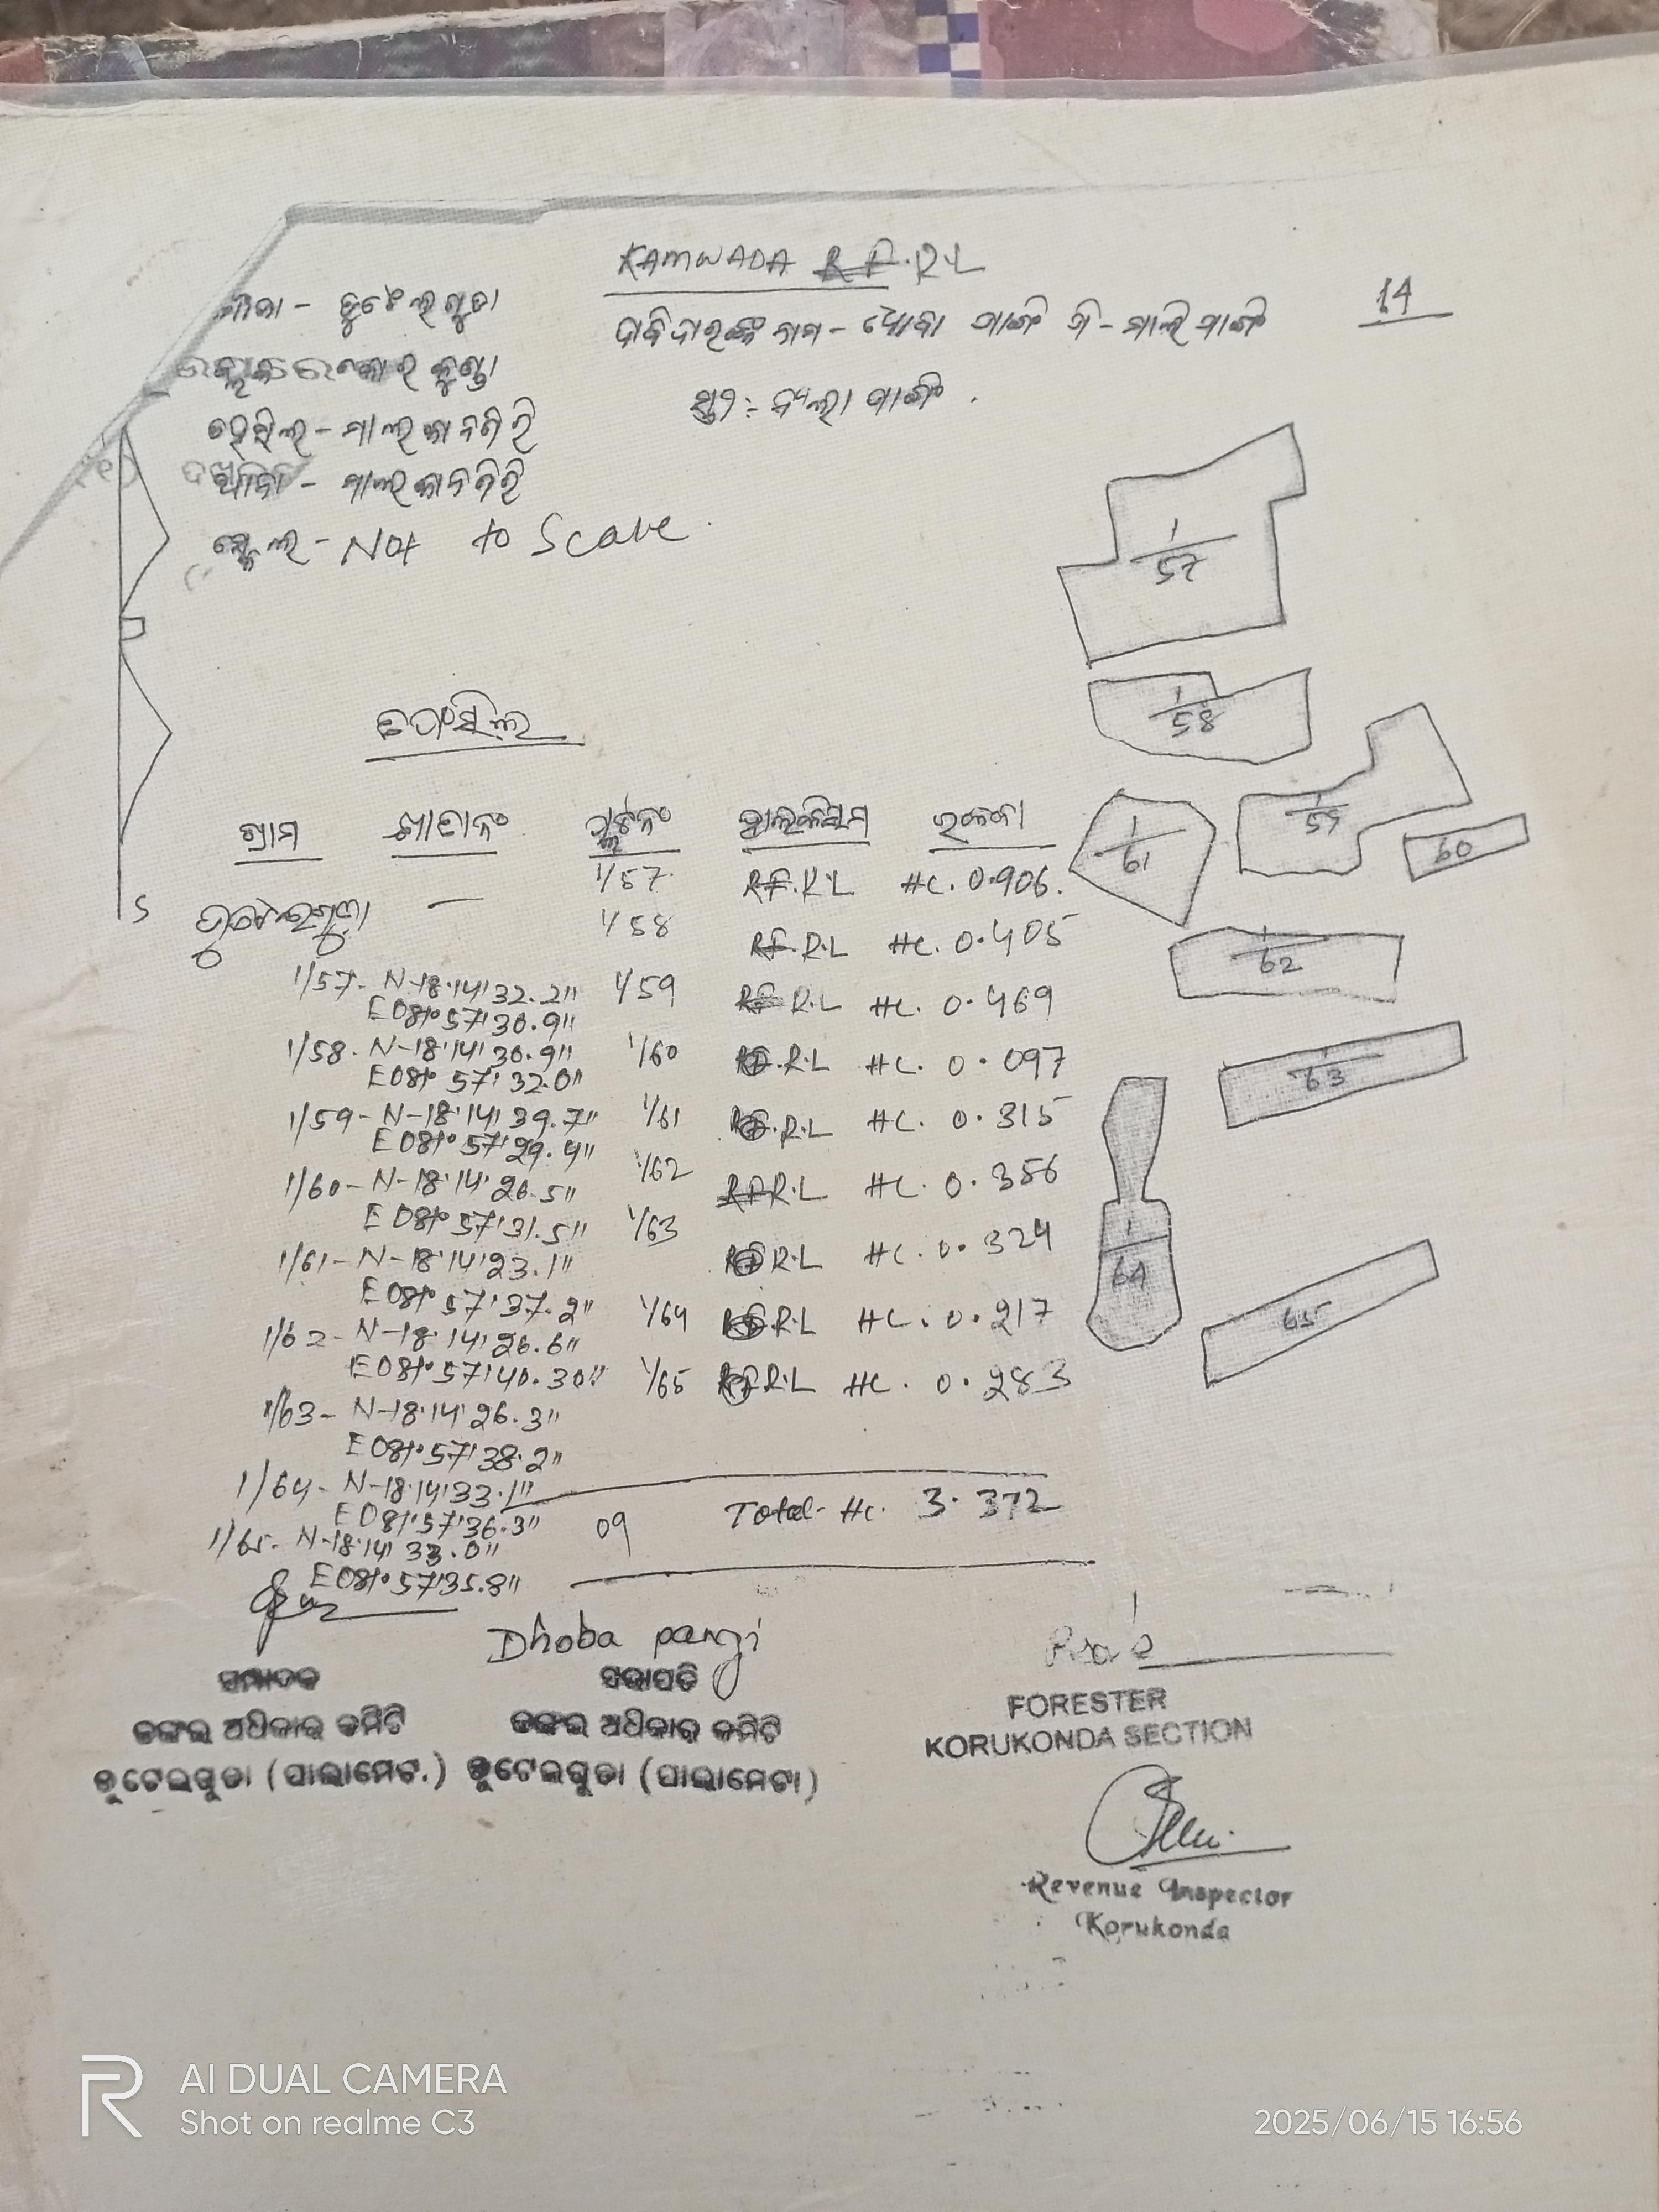 KAMWADA R.F.R.L
14
ମୌଜା - ଡୁଟେଲଗୁଡା
ଦାବିଦାରଙ୍କ ନାମ - ଧୋବା ପାଙ୍ଗି ପି - ମାଲି ପାଙ୍ଗି
କୁଣ୍ଡା
ପାଙ୍ଗି .
ତହସିଲ - ମାଲକାନଗିରି
ଥାନା - ମାଲକାନଗିରି
ସ୍କେଲ - Not to Scale
1/57
1/58
ତପସିଲ
1/59
60
1/61
ଗ୍ରାମ ଖାତାନଂ ପ୍ଲଟନଂ କିସମ ରକବା
1/57 RF.R.L HC. 0.906.
S ଡୁଟେଲଗୁଡା — 1/58 RF.R.L HC. 0.405
1/62
1/57- N-18°14'32.2" 1/59 RF R.L HC. 0.469
E081°57'30.9"
1/58- N-18°14'30.9" 1/60 RF.R.L HC. 0.097
E081°57'32.0"
63
1/59- N-18°14'39.7" 1/61 RF.R.L HC. 0.315
E081°57'29.4"
1/60- N-18°14'26.5" 1/62 RFR.L HC. 0.356
E081°57'31.5" 1/63
1/61- N-18°14'23.1" RFR.L HC. 0.324
1/64
E081°57'37.2" 1/64 RFR.L HC. 0.217
1/62- N-18°14'26.6"
65
E081°57'40.30" 1/65 RFR.L HC. 0.283
1/63- N-18°14'26.3"
E081°57'38.2"
1/64- N-18°14'33.1"
E081°57'36.3" 09 Total- Hc. 3.372
1/65- N-18°14'33.0"
E081°57'35.8"
Dhoba pangi
ସମ୍ପାଦକ ସଭାପତି
ଜଙ୍ଗଲ ଅଧିକାର କମିଟି ଜଙ୍ଗଲ ଅଧିକାର କମିଟି
ଡୁଟେଲଗୁଡା (ପାଲାମେଟା) ଡୁଟେଲଗୁଡା (ପାଲାମେଟା)
FORESTER
KORUKONDA SECTION
Revenue Inspector
Korukonda
AI DUAL CAMERA
Shot on realme C3
2025/06/15 16:56